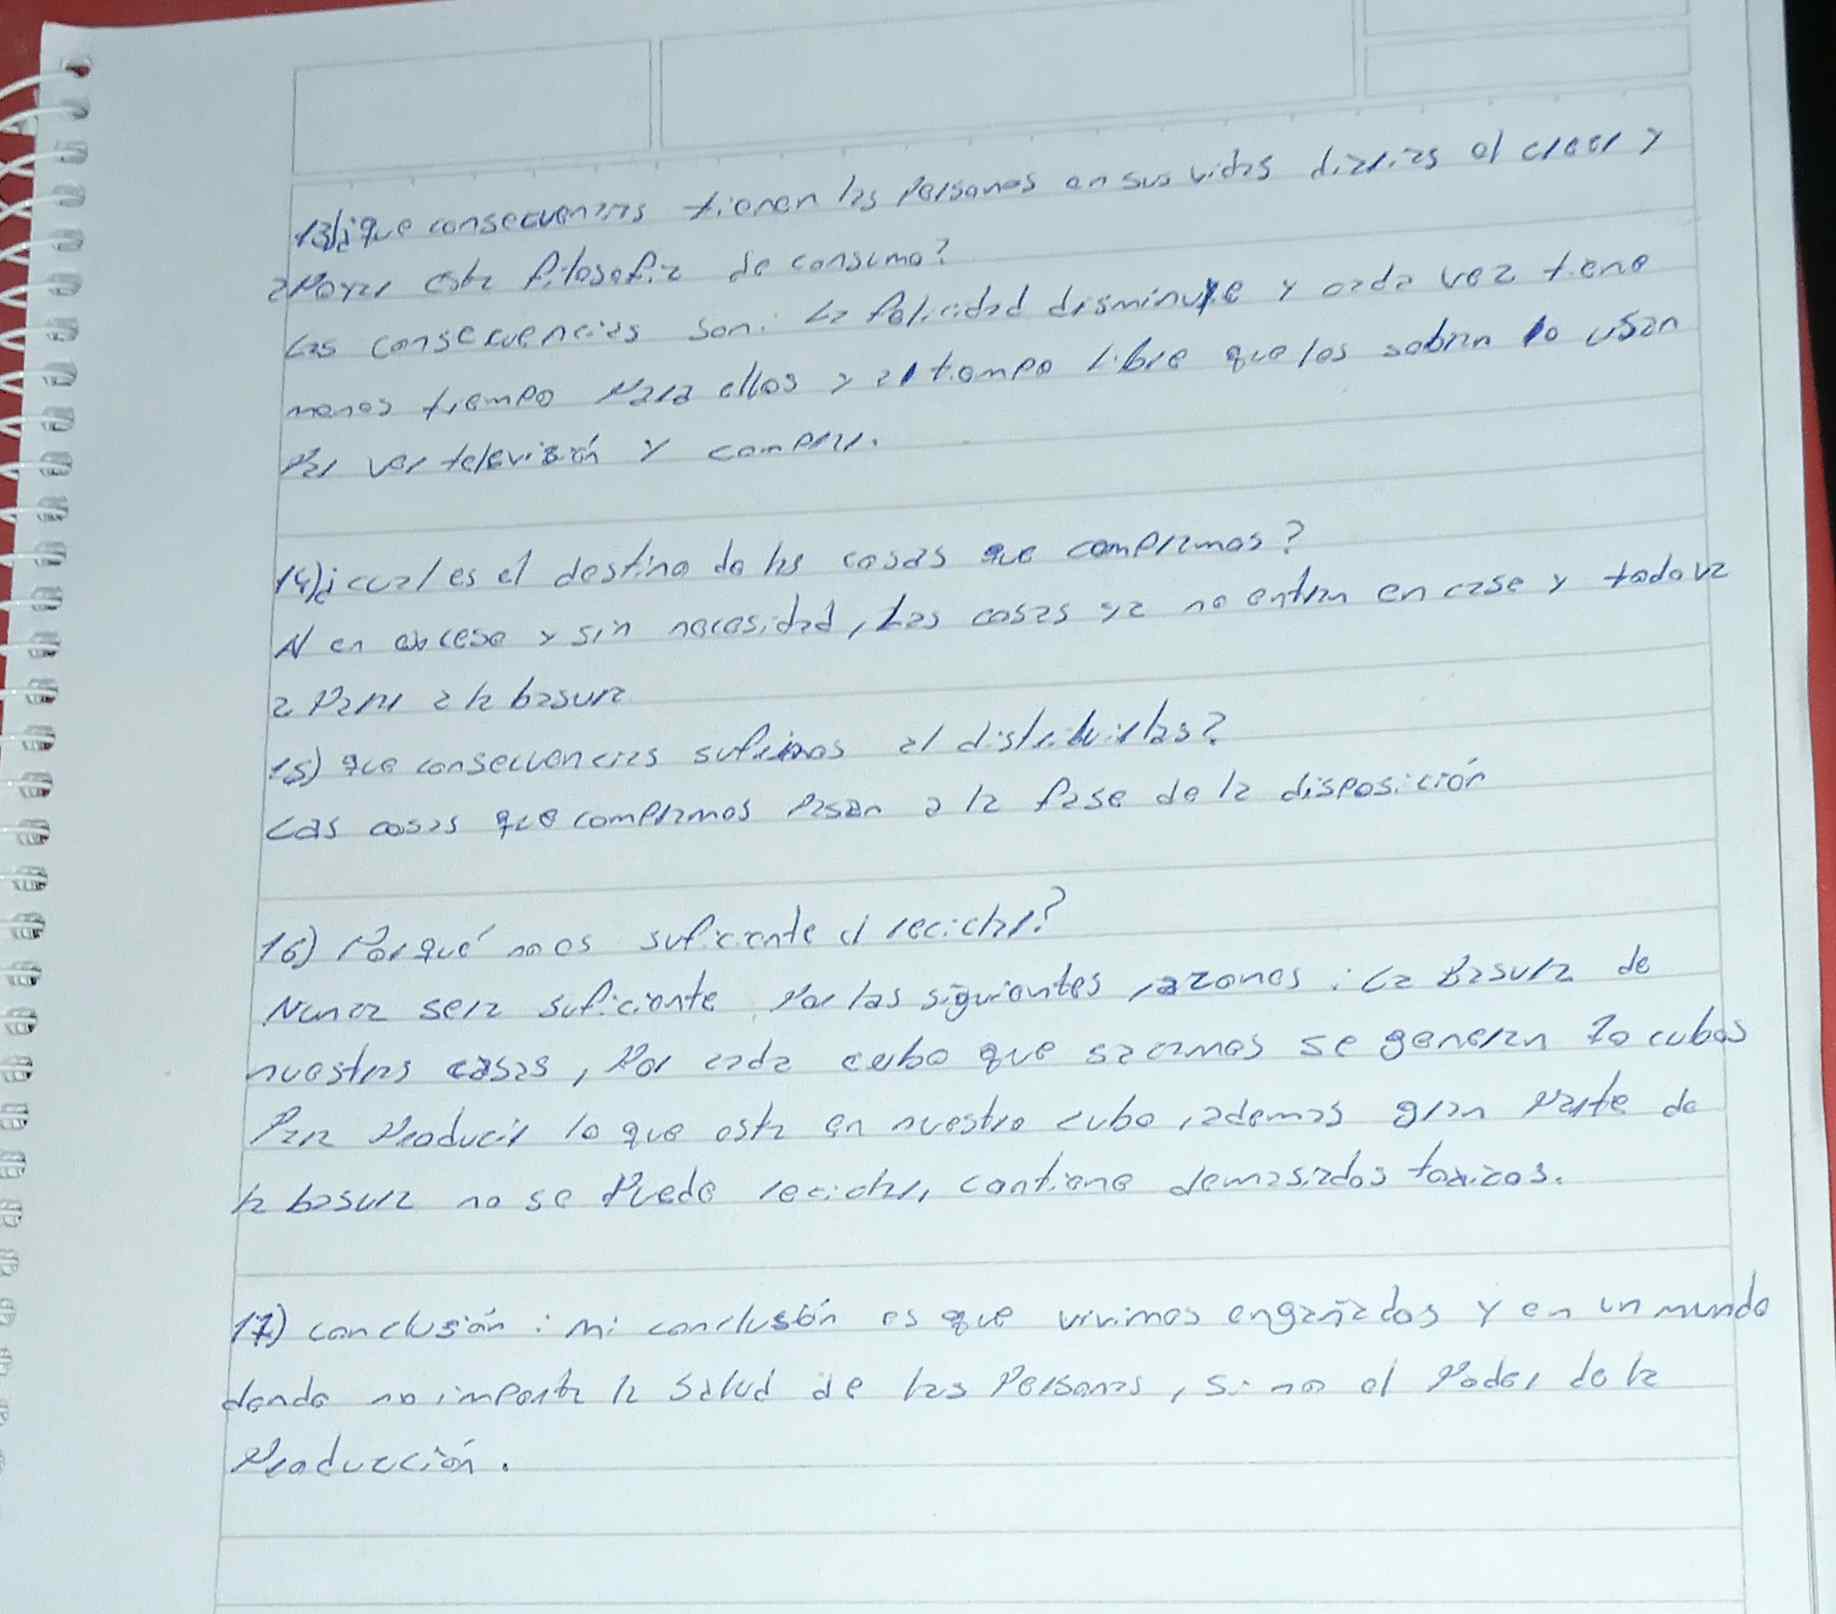 13)¿que consecuencias tienen las Personas en sus vidas diarias al creer y
apoyar esta filosofia de consumo?
Las consecuencias son: La felicidad disminuye y cada vez tiene
menos tiempo para ellos y el tiempo libre que les sobran lo usan
Par ver televisión y comprar.
14)¿cual es el destino de las cosas que compramos?
Al en exceso y sin necesidad, Las cosas ya no entran en casa y todo va
a Parar a la basura
15) que consecuencias sufrimos al distribuirlas?
Las cosas que compramos Pasan a la fase de la disposición
16) Porqué no es suficiente el reciclar?
Nunca sera suficiente Por las siguientes razones: La Basura de
nuestras casas, Por cada cubo que sacamos se generan 70 cubos
Para Producir lo que esta en nuestro cubo, ademas gran parte de
la basura no se Puede reciclar, contiene demasiados toxicos.
17) conclusión: mi conclusión es que vivimos engañados y en un mundo
donde no importa la Salud de las Personas, si no el Poder de la
Producción.